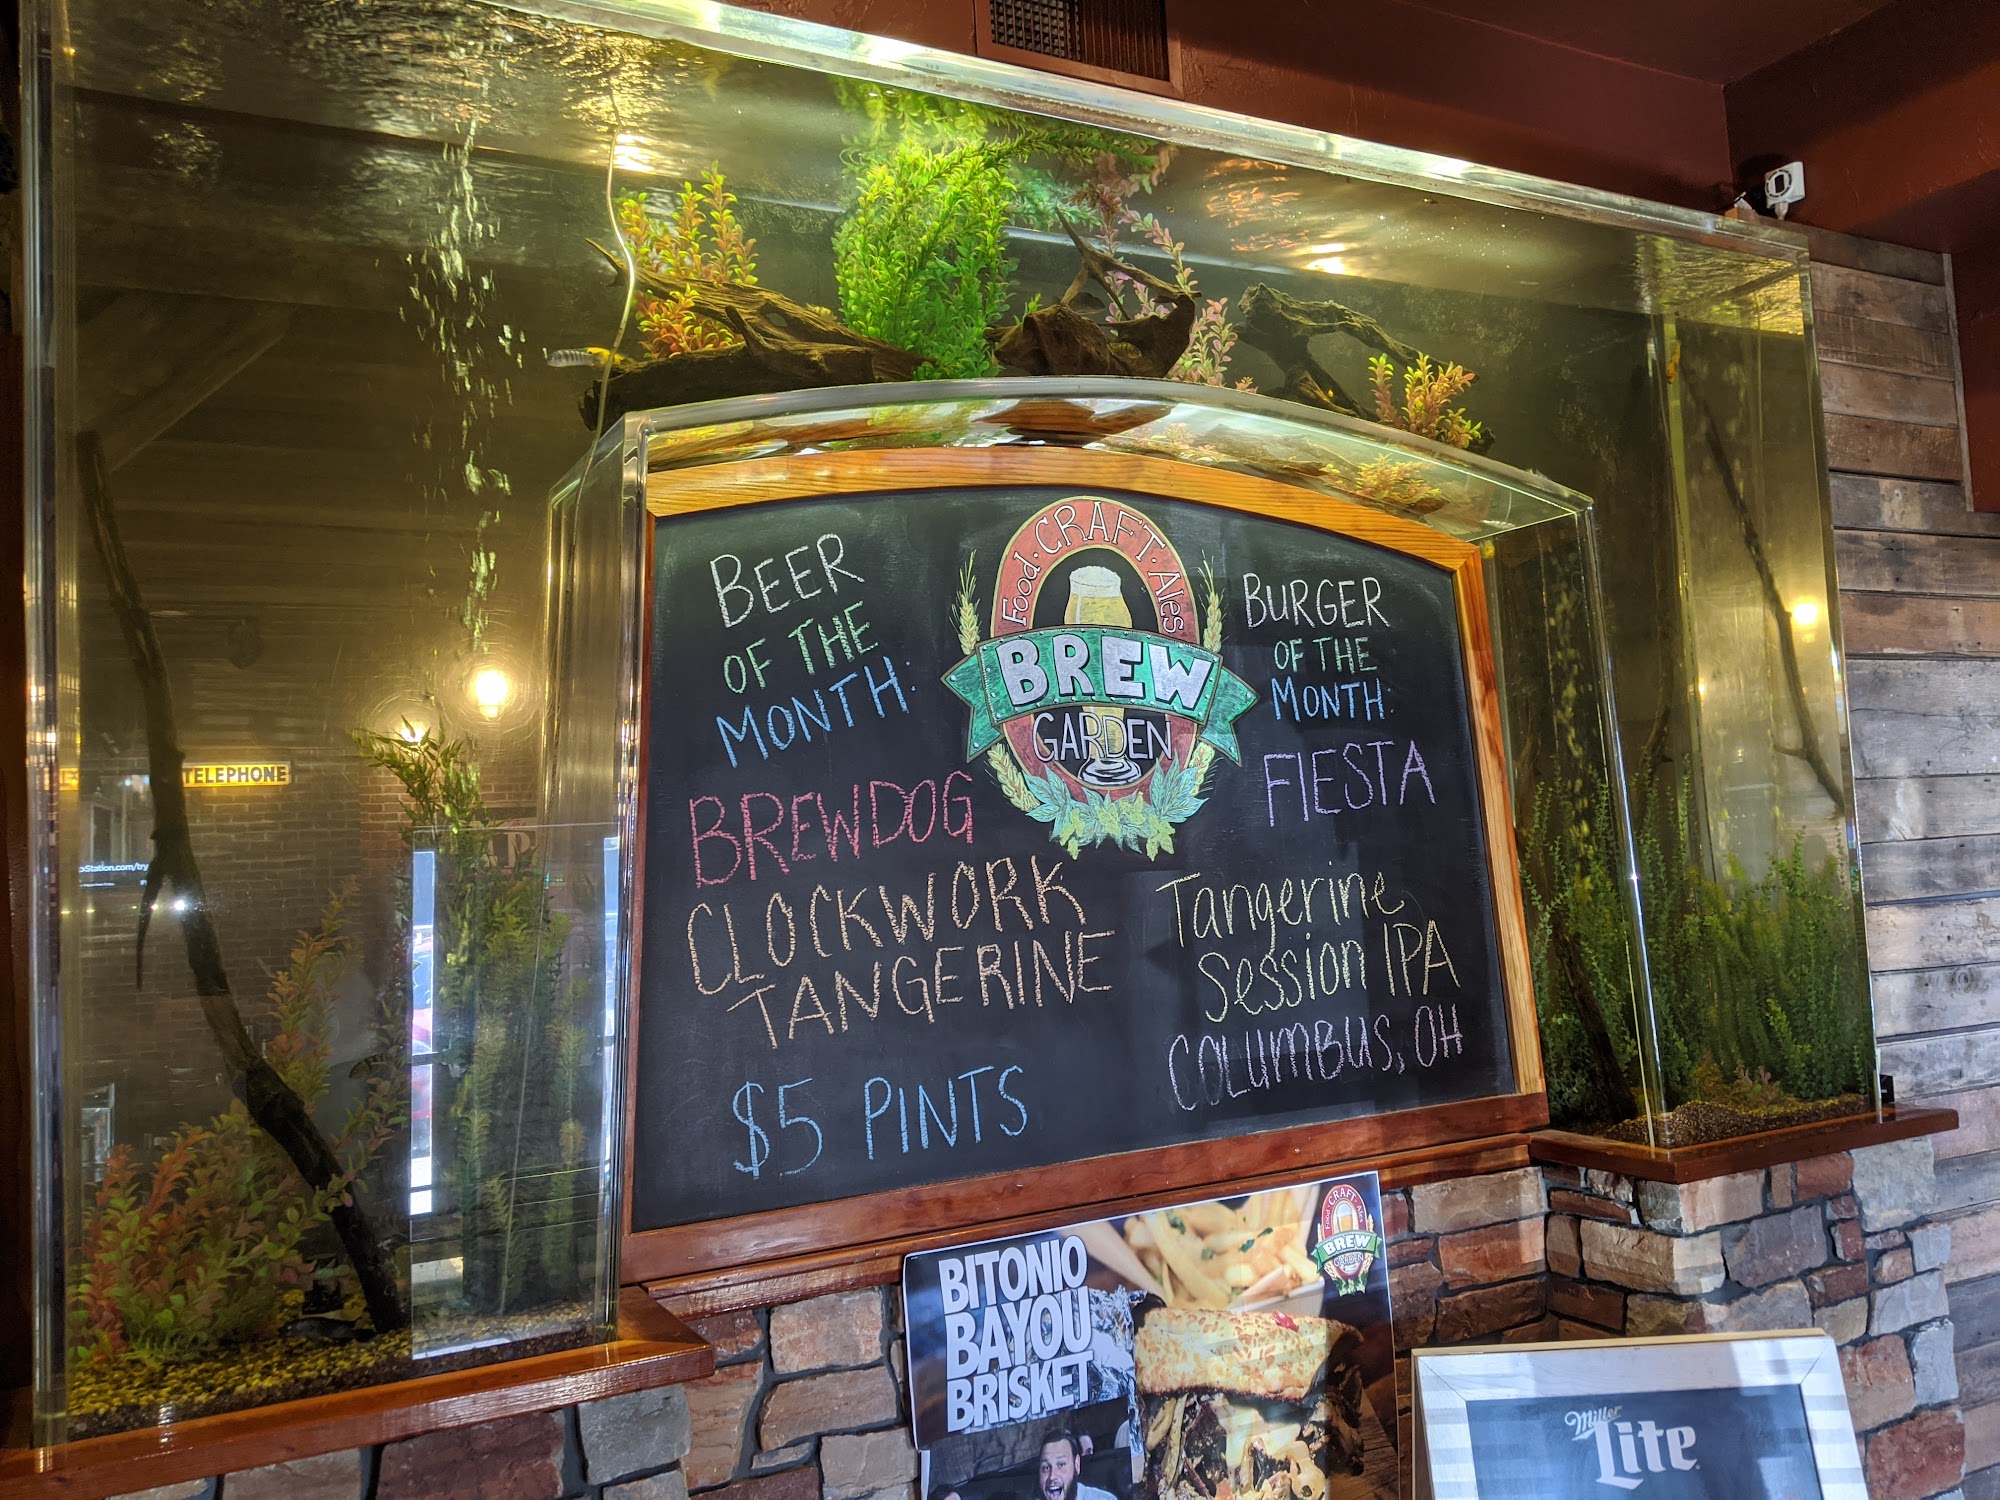 BEER
OF THE
MONTH:
BREWDOG
CLOCKWORK
TANGERINE
$5 PINTS
Food · CRAFT · Ales
BREW
GARDEN
BURGER
OF THE
MONTH:
FIESTA
Tangerine
Session IPA
COLUMBUS, OH
TELEPHONE
BITONIO
BAYOU
BRISKET
Food · CRAFT · Ales
BREW
GARDEN
Miller
Lite